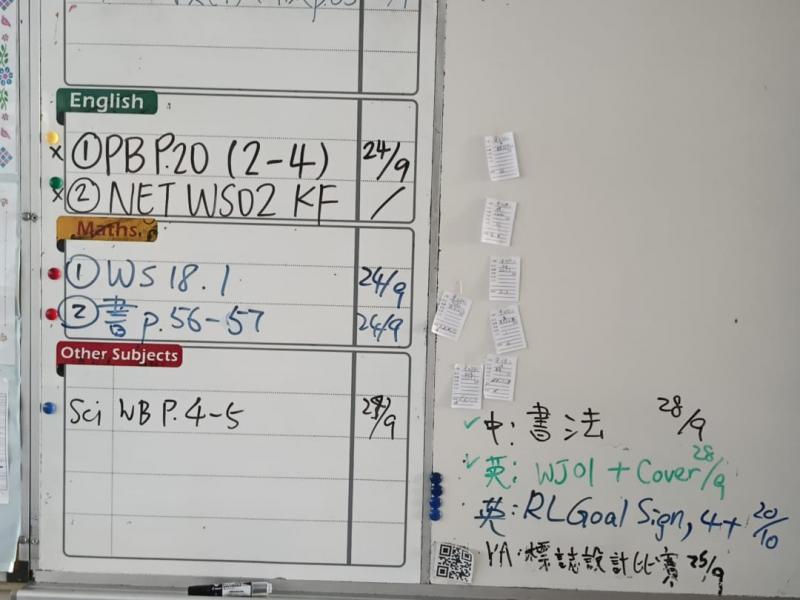 English
① PB P.20 (2-4) 24/9
② NET WS02 KF /
Maths
① WS 18.1 24/9
② 書 p.56-57 24/9
Other Subjects
Sci WB P.4-5
中: 書法 28/9
英: WJ01 + Cover 28/9
英: RL Goal Sign, 4+ 20/10
VA: 標誌設計比賽 25/9